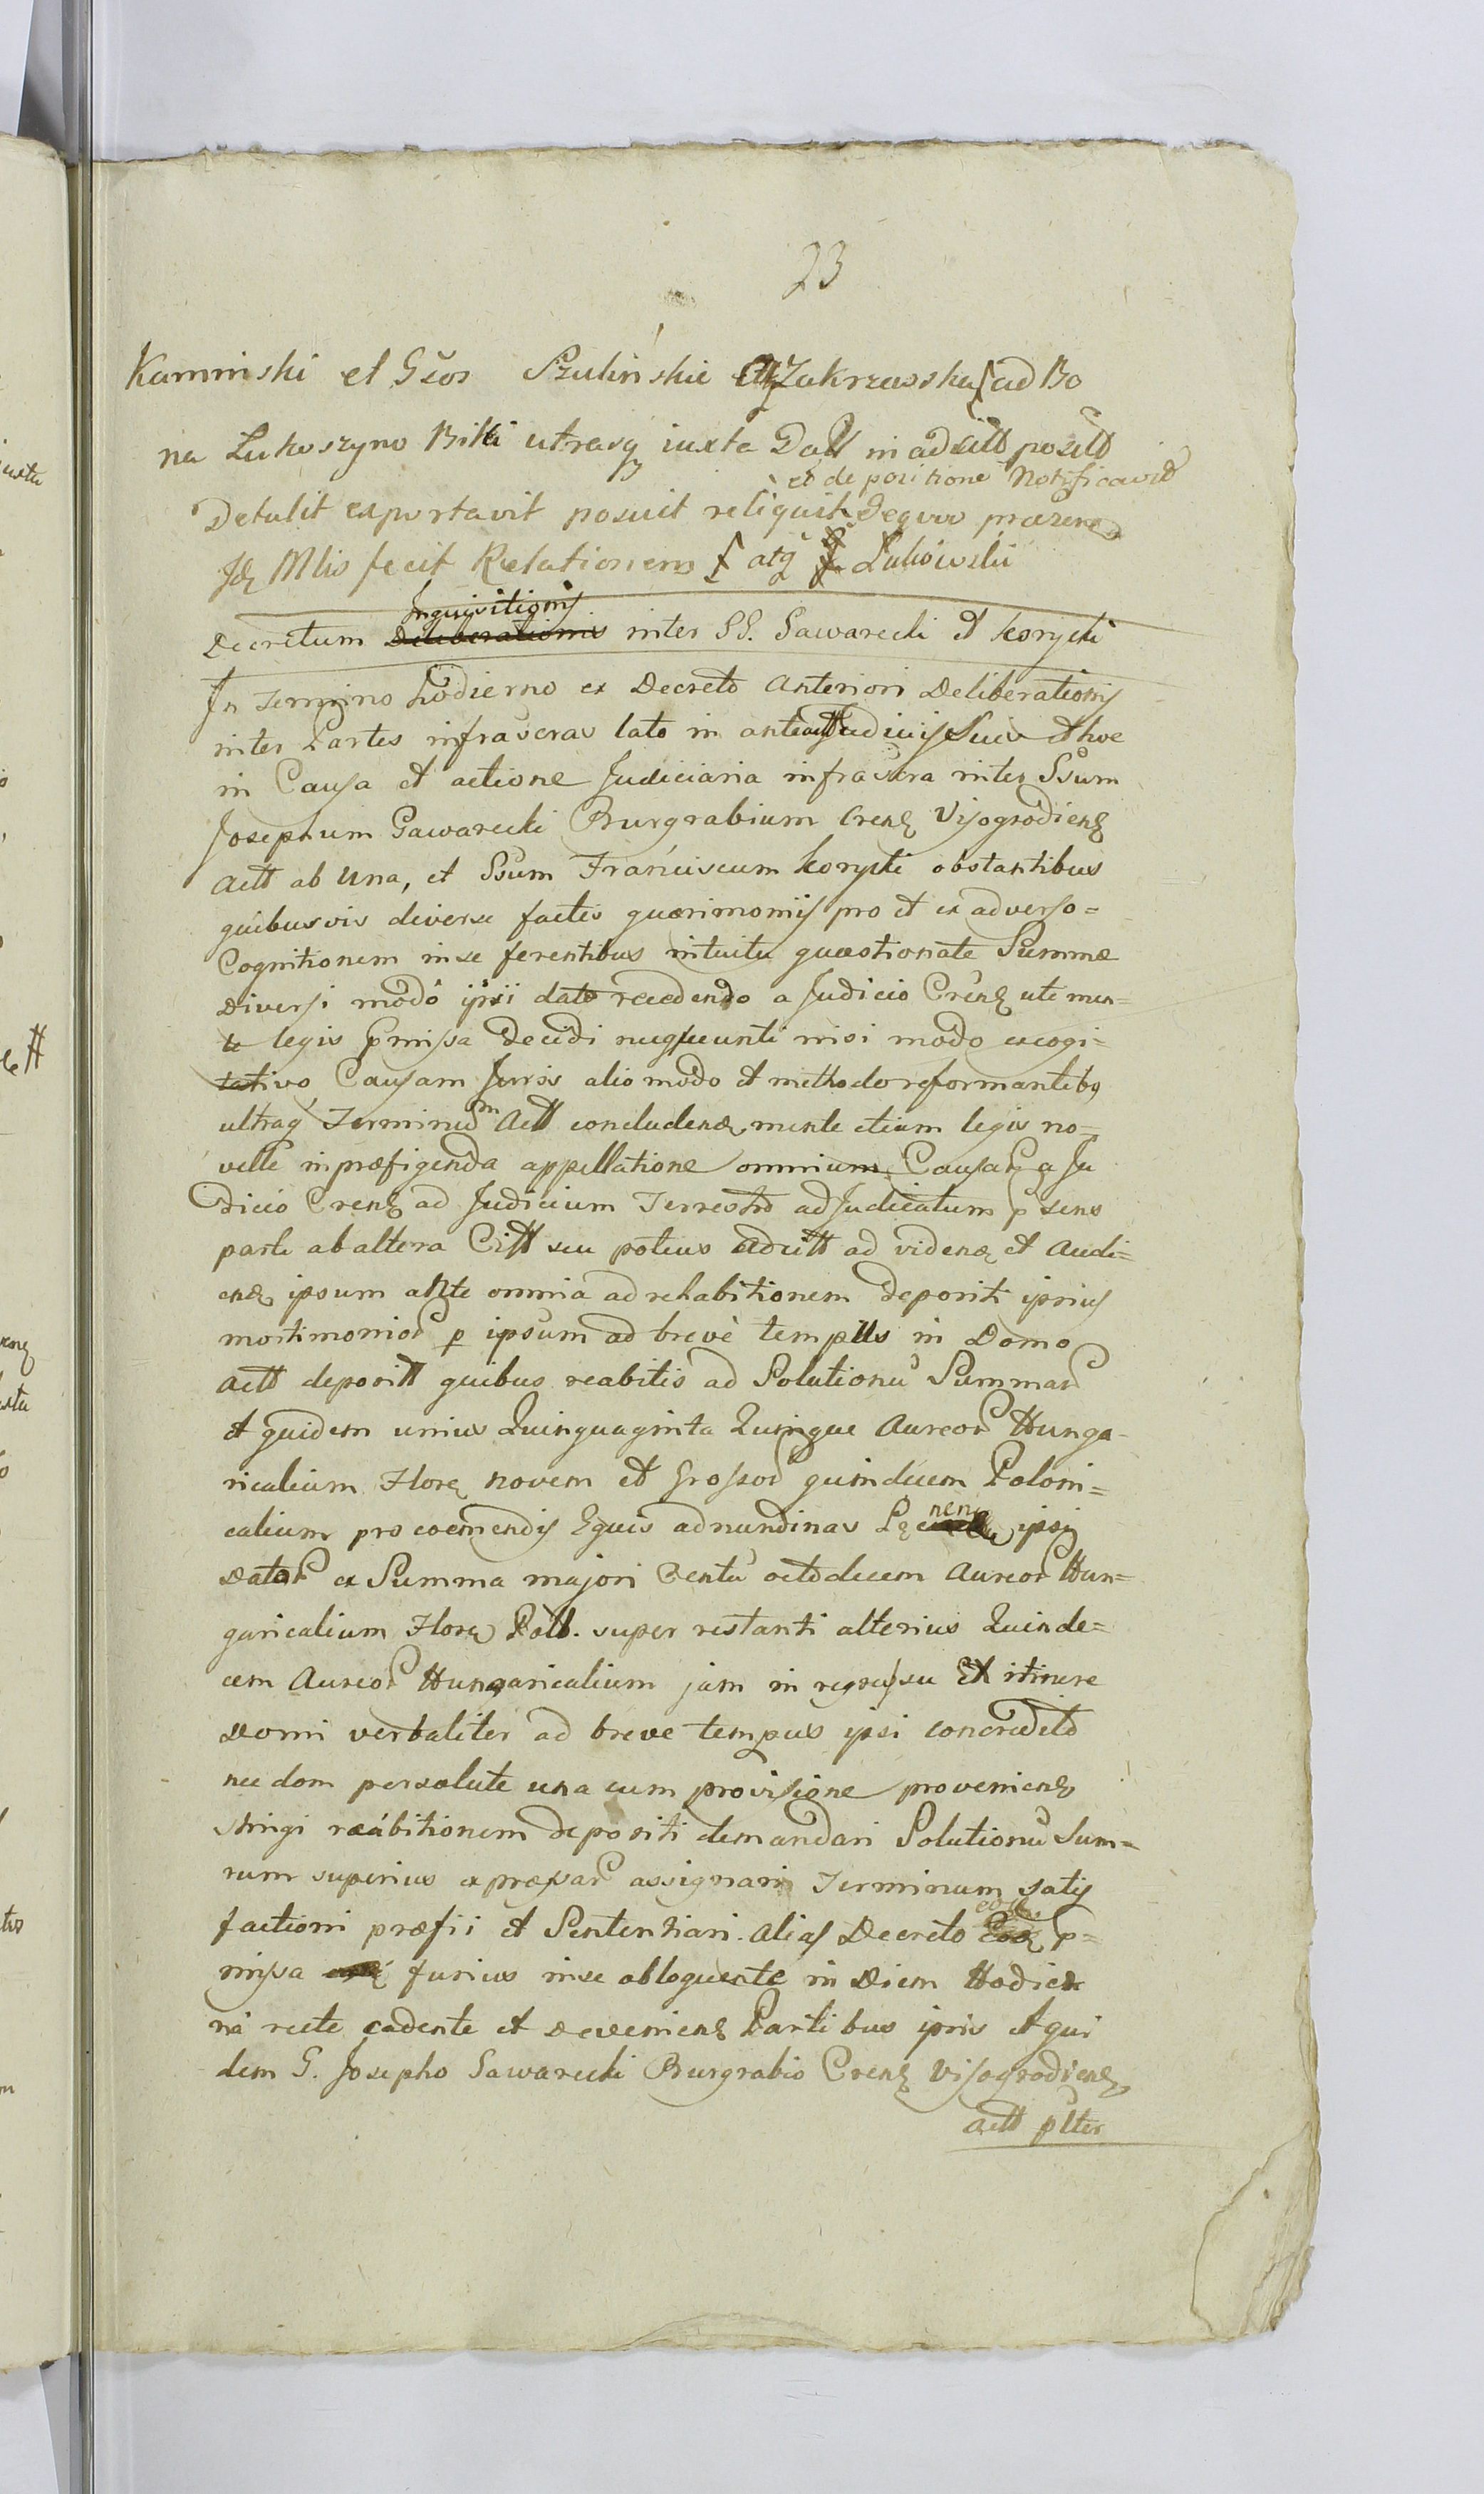 23
Kaminski et Gsos Szulinskie Zakrzewska ad Bo
na Lukoszyno Biki utrasq iuxta Datt in adcitt positt
et de positione Notificavit
Detulit exportavit posuit reliquit Dequo praesens
Idq Mlis fecit Relationem atq Lukówski
Inquisitionis
Decretum Deliberationis inter GG. Gawarecki et Korycki
In Termino hodierno ex Decreto Anteriori Deliberationis
inter Partes infrascras lato in anteact Judiciis Suis et hoc
in Causa et actione Judiciaria infrascra inter Gsum
Josephum Gawarecki Burgrabium Crens Visogrodiens
Actt ab Una, et Gsum Franciscum Korycki obstantibus
quibusvis diverse factis quaerimoniis pro et ex adverso=
Cognitionem in se ferentibus intuitu quaestionate Summae
Diversi modo ipsi dato recedendo a Judicio Crens uti men=
te legis pmissa Decidi nequeunti nisi modo excogi=
tativo Causam Juris alio modo et methodo reformantibq
ultraq Terminum Actt concludendq mente etiam legis no=
velle in praefigenda appellatione omnium Causar a Ju
dicio Crens ad Judicium Terrestre adjudicatum psens
parte ab altera Citt seu potius adcitt ad videndq et Audi=
endq ipsum ante omnia ad rehabitionem depositi ipsius
mortimonior p ipsum ad breve tempus in Domo
Actt depositt quibus reabitis ad Solutionem Summar
et quidem unius Quinquaginta Quinque Aureor Hunga=
ricalium Florq novem et Grossor quindecem Poloni=
calium pro coemendis Equis ad nundinas ipsi
Dator ex Summa majori Centu octodecem Aureor Hun=
garicalium Florq Poll. super restanti alterius Quinde=
cem Aureor Hungaricalium jam in regressu Ex itinere
Domi verbaliter ad breve tempus ipsi concredito
nec dom persolute una cum provisione proveniens
stringi reabitionem depositi demandari Solutionem Sum=
rum superius expressar assignari Terminum satis
factioni praefii et Sententiari. Alias Decreto p=
missa furius in se obloquente in Diem Hodier
na recte cadente et deveniens Partibus ipsis et qui
dem G. Josepho Gawarecki Burgrabio Crens Visogrodiens
Actt plter